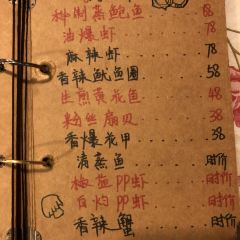 秘制蒸鲍鱼 68
油爆虾 78
麻辣虾 78
香辣鱿鱼圈 58
生煎黄花鱼 48
粉丝扇贝 38
香爆花甲 38
清蒸鱼 时价
椒盐PP虾 时价
白灼PP虾 时价
香辣蟹 时价